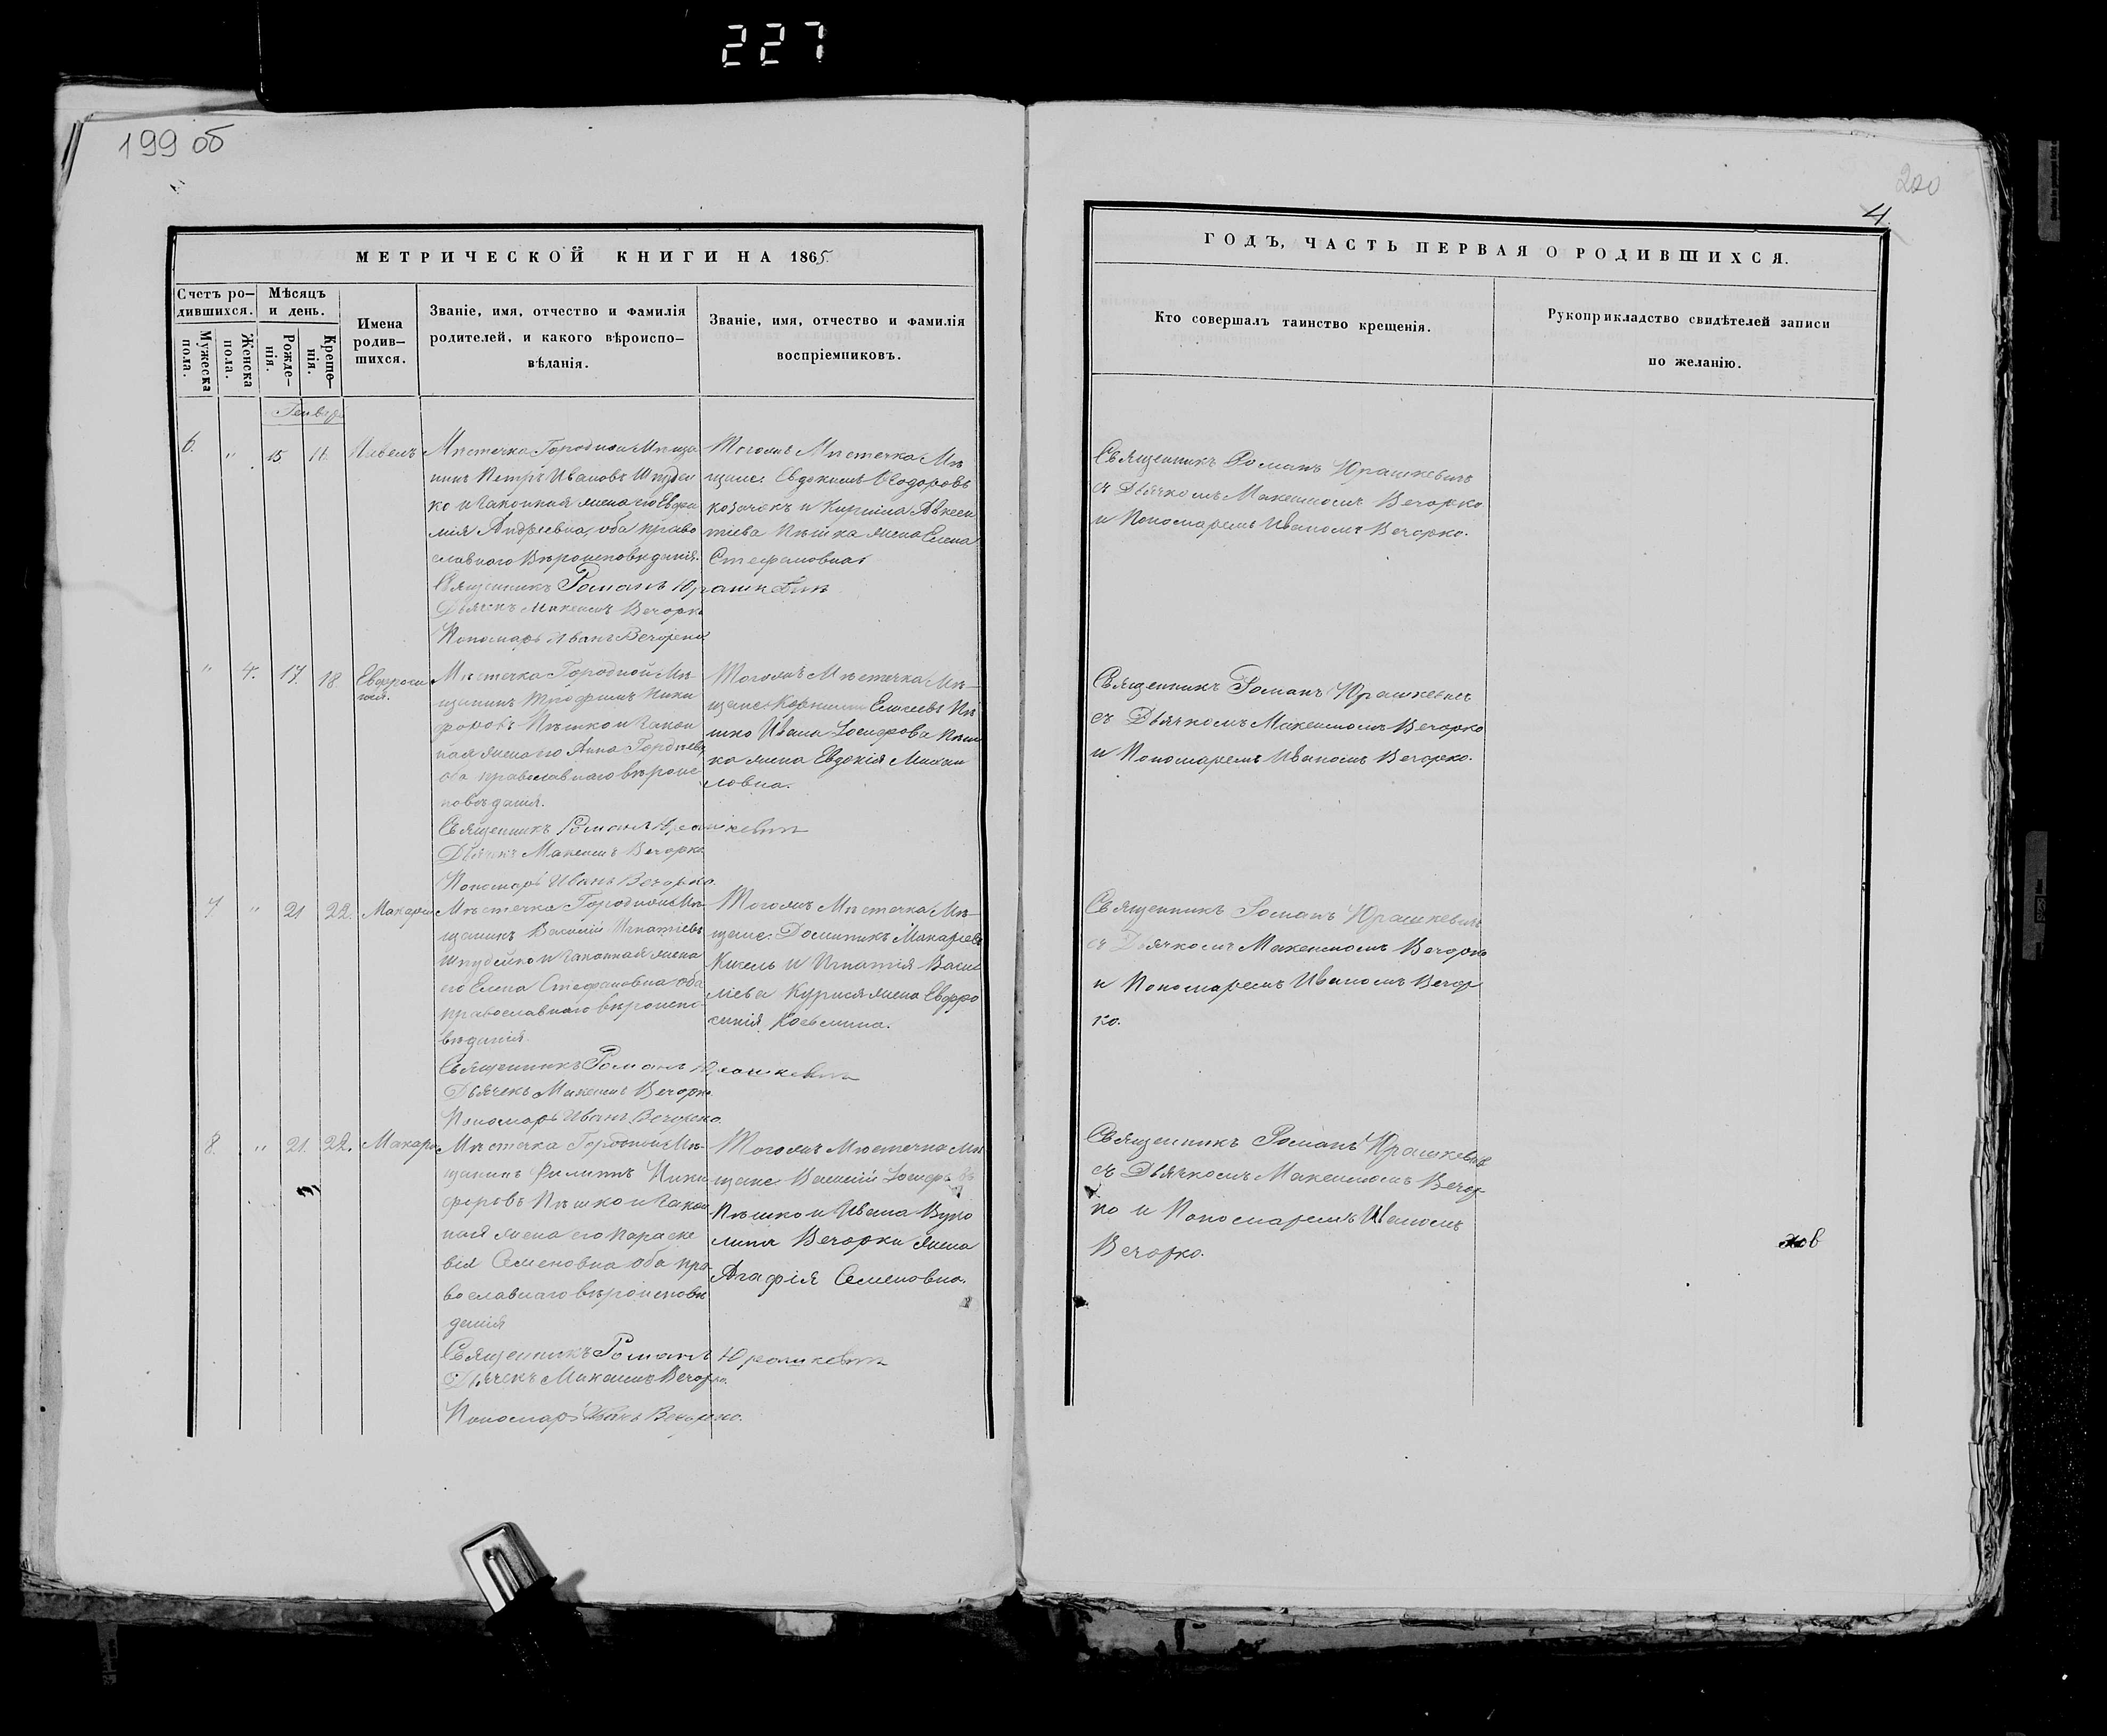 227
199 об
200
4.
МЕТРИЧЕСКОЙ КНИГИ НА 1865.
Счетъ ро-
дившихся.
Мужеска
пола.
Женска
пола.
Мѣсяцъ
и день.
Рожде-
нія.
Креще-
нія.
Имена
родив-
шихся.
Званіе, имя, отчество и фамилія
родителей, и какого вѣроиспо-
вѣданія.
Званіе, имя, отчество и фамилія
воспріемниковъ.
Генварь
6. " 15
Павелъ
Мѣстечка Городной Мѣща
нинъ Петръ Ивановъ Шпудей
ко и Законная жена его Евфи
мія Андреевна, оба право
славнаго Вѣроисповѣданія.
Священникъ Романъ Юрашкевичъ
Дьячекъ Максимъ Вечорко
Пономарь Иванъ Вечорко
Тогожъ Мѣстечка Мѣ
щане: Евдокимъ Ѳеодоровъ
козачекъ и Кирила Авксен
тіева Пѣшка жена Елена
Стефановна
" 4. 17. 18.
Евфроси
нія.
Мѣстечка Городной Мѣ-
щанинъ Трофимъ Ники
форовъ Пѣшко и Закон
ная жена его Анна Гордѣева
оба православнаго вѣроис
повѣданія.
Священникъ Романъ Юрашкевичъ
Дьячекъ Максимъ Вечорко
Пономарь Иванъ Вечорко.
Тогожъ Мѣстечка Мѣ-
щане: Корнилій Елисеевъ Пѣ
шко Ивана Іосифова Пѣш
ка жена Евдокія Михаи
ловна.
7 " 21 22.
Макарій
Мѣстечка Городной Мѣ-
щанинъ Василій Игнатіевъ
Шпудейко и Законная жена
его Елена Стефановна оба
православнаго вѣроиспо-
вѣданія.
Священникъ Романъ Юрашкевичъ
Дьячекъ Максимъ Вечорко
Пономарь Иванъ Вечорко.
Тогожъ Мѣстечка Мѣ-
щане: Доминикъ Макаріевъ
Кисель и Игнатія Васи
ліева Курися жена Евфро
синія Косьмина.
8. " 21. 22.
Макарій
Мѣстечка Городной Мѣ-
щанинъ Филиппъ Ники
форовъ Пѣшко и Закон
ная жена его Параске
вія Семеновна оба пра
вославнаго вѣроисповѣ
данія
Священникъ Романъ Юрашкевичъ
Дьячекъ Максимъ Вечорко.
Пономарь Иванъ Вечорко.
Тогожъ Мѣстечка Мѣ
щане Василій Іосифовъ
Пѣшко и Ивана
Вечорки жена
Агафія Семеновна.
ГОДЪ, ЧАСТЬ ПЕРВАЯ О РОДИВШИХСЯ.
Кто совершалъ таинство крещенія.
Рукоприкладство свидѣтелей записи
по желанію.
Священникъ Романъ Юрашкевичъ
съ Дьячкомъ Максимомъ Вечорко
и Пономаремъ Иваномъ Вечорко.
Священникъ Романъ Юрашкевичъ
съ Дьячкомъ Максимомъ Вечорко
и Пономаремъ Иваномъ Вечорко.
Священникъ Романъ Юрашкевичъ
съ Дьячкомъ Максимомъ Вечорко
и Пономаремъ Иваномъ Вечор
ко.
Священникъ Романъ Юрашкевичъ
съ Дьячкомъ Максимомъ Вечор-
ко и Пономаремъ Иваномъ
Вечорко.